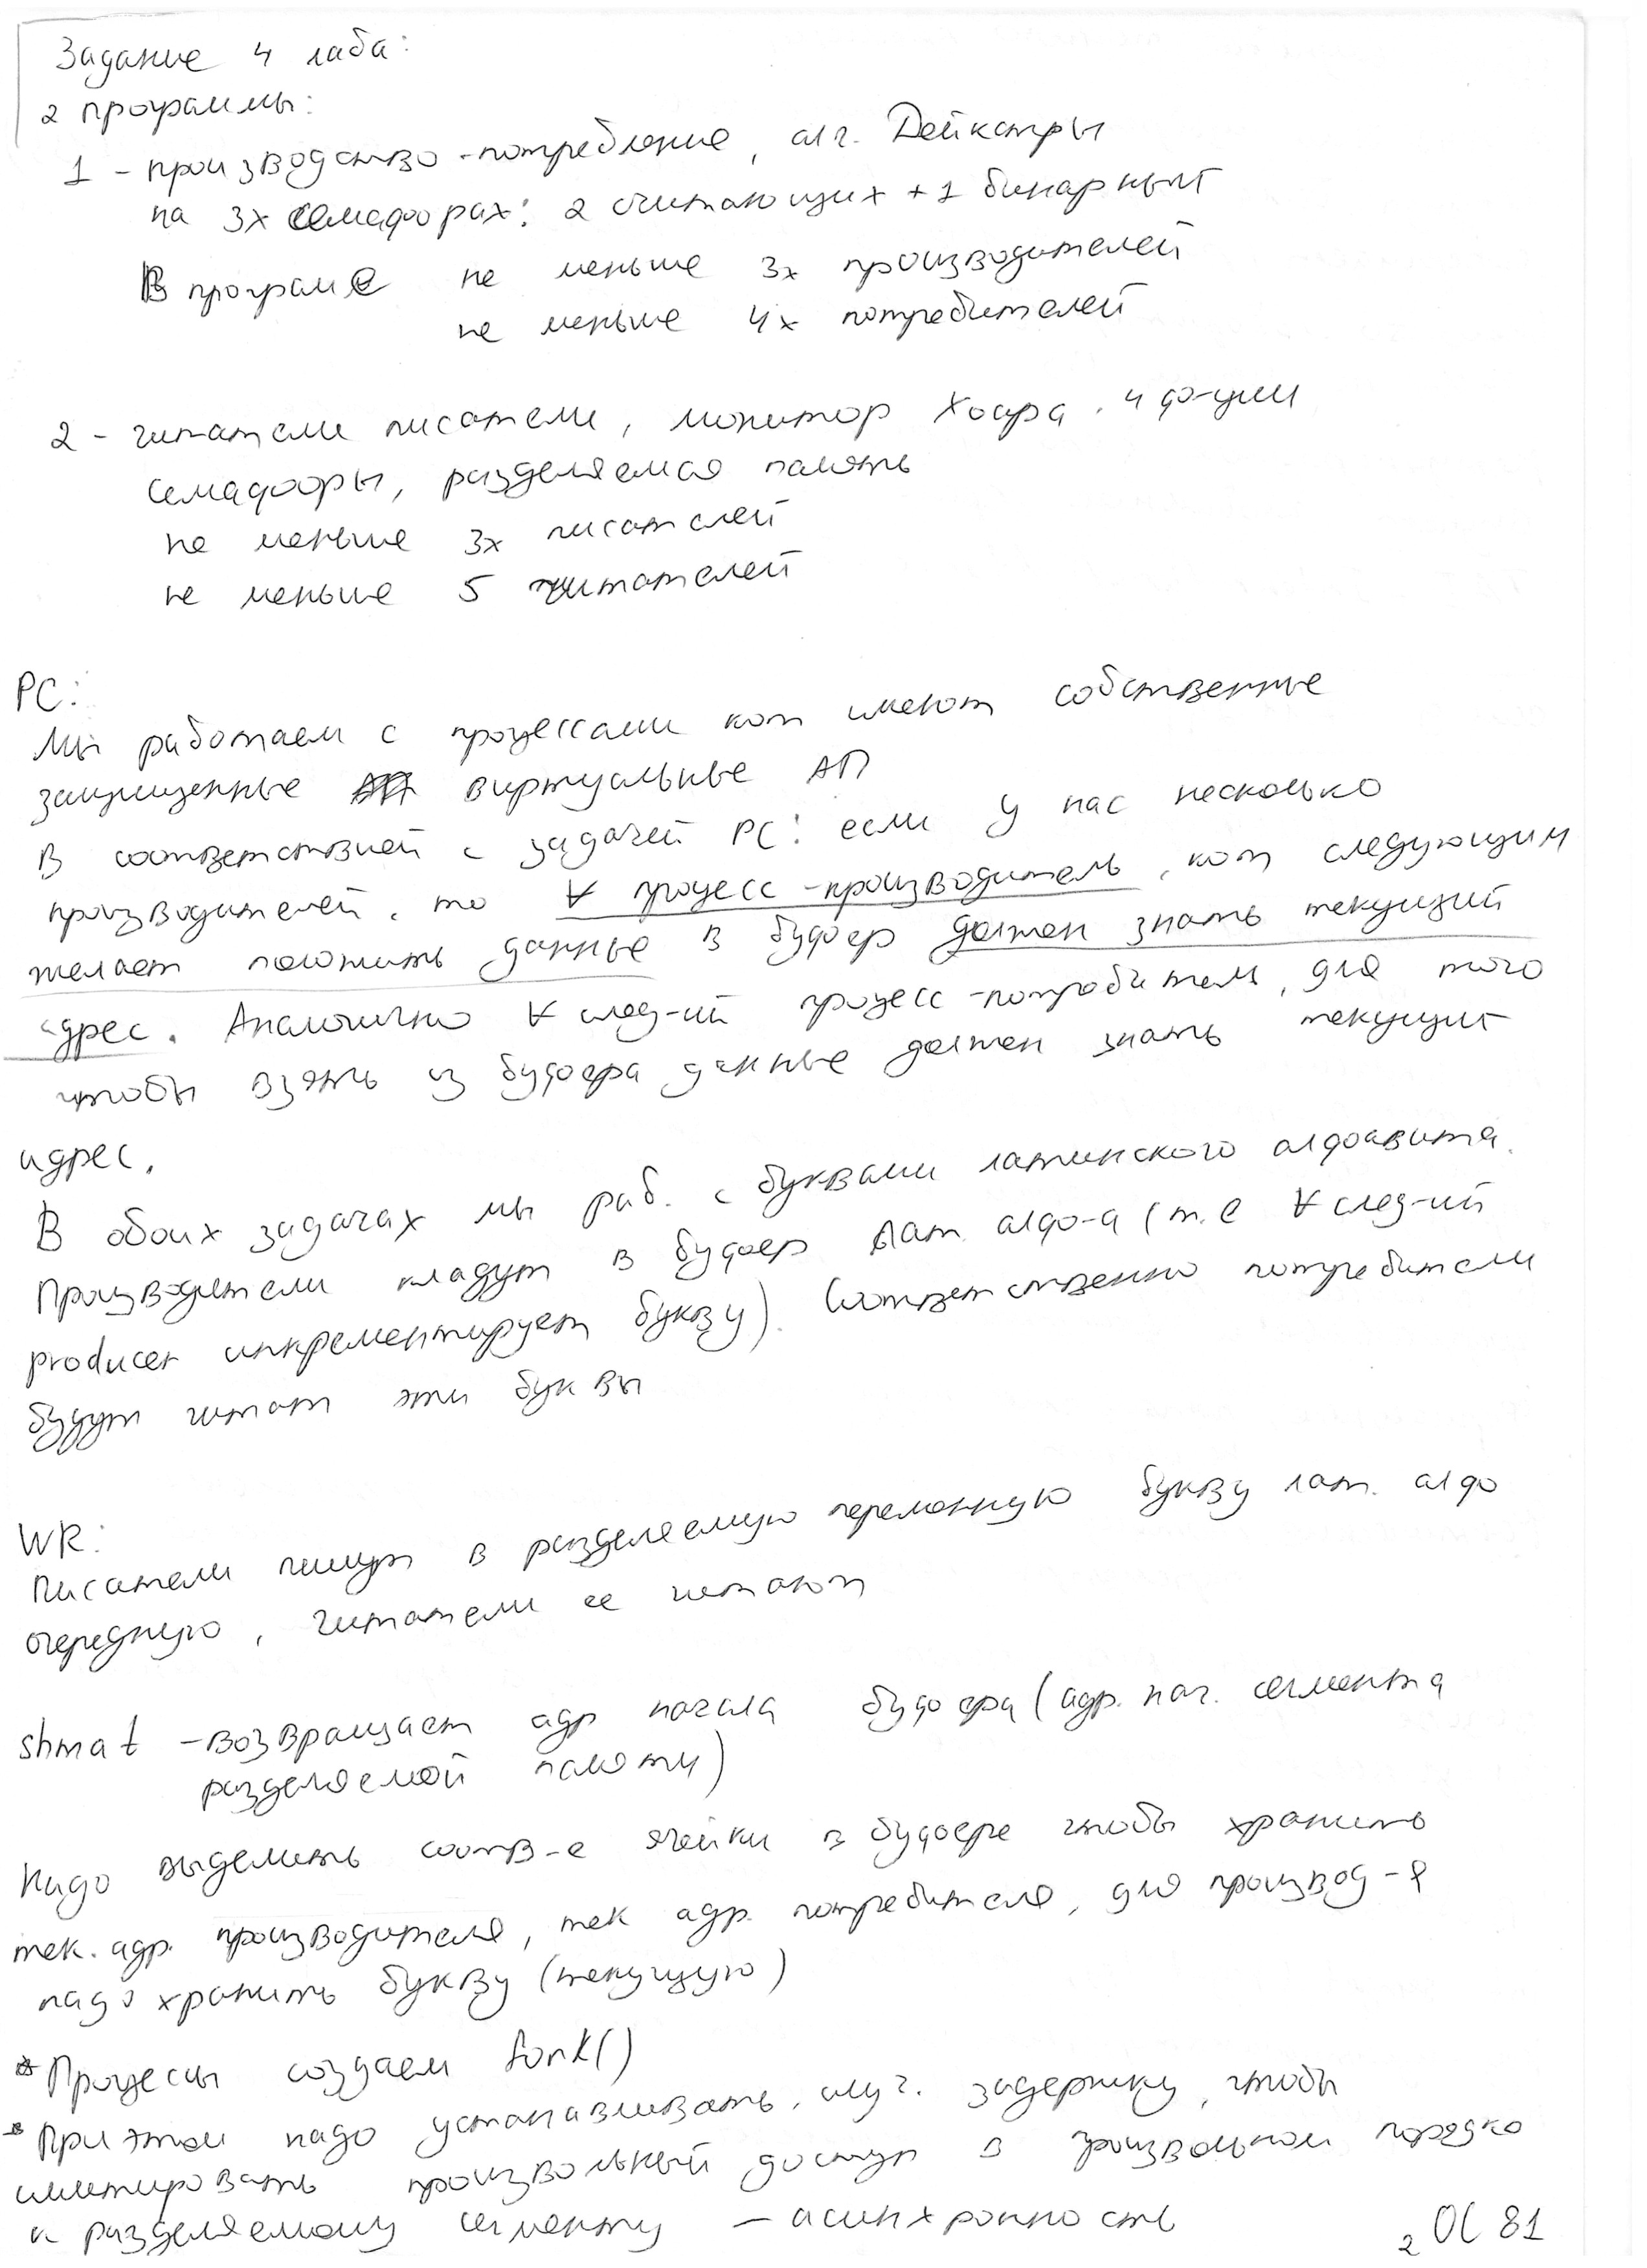 Задание 4 лаба:
2 программы:
1 - производство-потребление, алг. Дейкстры
на 3х семафорах: 2 считающих + 1 бинарный
В програме не меньше 3х производителей
не меньше 4х потребителей
2 - читатели писатели, монитор Хоара. 4 ф-ции
семафоры, разделяемая память
не меньше 3х писателей
не меньше 5 читателей
PC:
Мы работаем с процессами кот имеют собственные
защищенные виртуальные АП
В соответствией с задачей PC: если у нас несколько
производителей, то ∀ процесс-производитель, кот следующим
желает положить данные в буфер должен знать текущий
адрес. Аналогично ∀ след-ий процесс-потребитель, для того
чтобы взять из буфера данные должен знать текущий
адрес.
В обоих задачах мы раб. с буквами латинского алфавита.
Производители кладут в буфер лат. алф-а (т.е ∀ след-ий
producer инкрементирует букву). Соответственно потребители
будут читат эти буквы
WR:
Писатели пишут в разделяемую переменную букву лат. алф
очередную, читатели ее читают
shmat - возвращает адр начала буфера (адр. нач. сегмента
разделяемой памяти)
Надо выделить соотв-е ячейки в буфере чтобы хранить
тек. адр. производителя, тек адр. потребителя, для произвед-я
надо хранить букву (текущую)
* Процессы создаем fork()
* При этом надо устанавливать случ. задержку, чтобы
имитировать произвольный доступ в произвольном порядке
к разделяемому сегменту - асинхронность
2 ОС 81